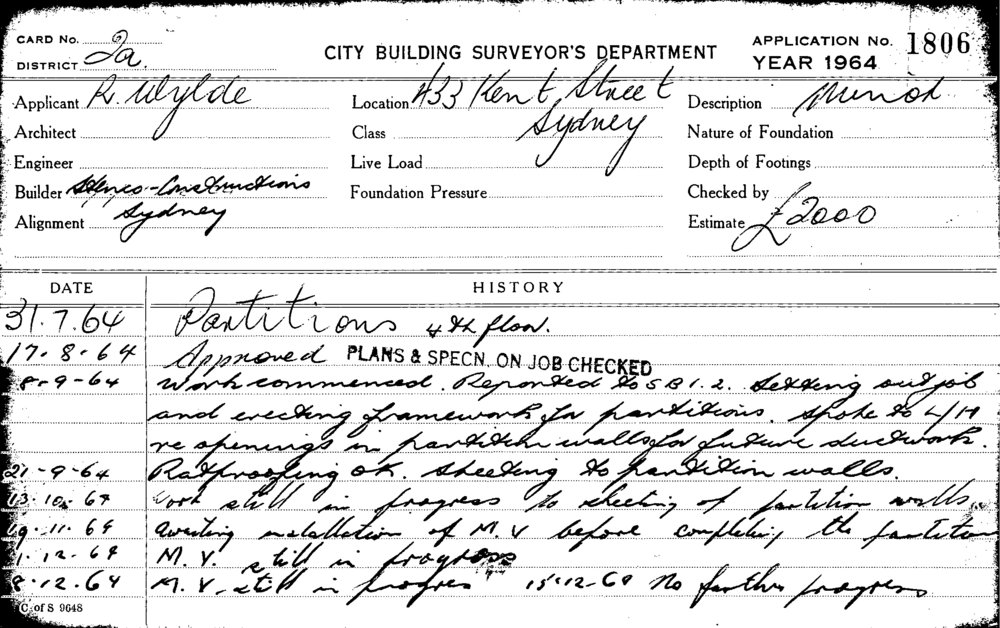 CARD No. 2a.
DISTRICT
CITY BUILDING SURVEYOR'S DEPARTMENT
APPLICATION No. 1806
YEAR 1964
Applicant R. Wylde
Location 433 Kent Street
Sydney
Description Minor
Architect
Class
Nature of Foundation
Engineer
Live Load
Depth of Footings
Builder -Constructions
Sydney
Foundation Pressure
Checked by
Alignment
Estimate £2000
DATE HISTORY
31.7.64 Partitions 4th floor.
17.8.64 Approved PLANS & SPECN. ON JOB CHECKED
8-9-64 Work commenced. Reported to S B I. 2. Setting out job
and erecting framework for partitions. Spoke to L/H
re openings in partition walls for future ductwork.
21-9-64 Ratproofing OK. Sheeting to partition walls.
13.10.64 Work still in progress to sheeting of partition walls.
19.11.64 Awaiting installation of M.V before completing the partition
1.12.64 M.V. still in progress
8.12.64 M.V. still in progress 15.12.64 No further progress
C. of S 9648